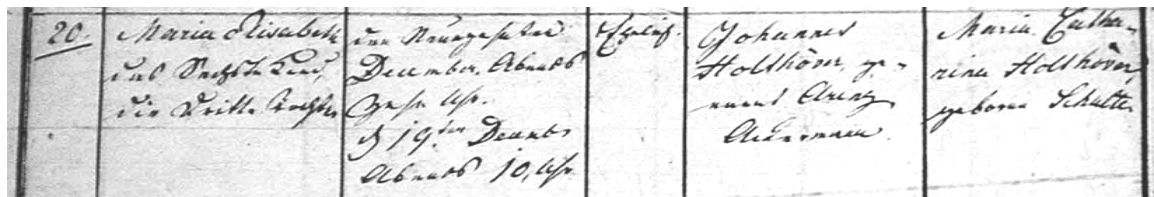 20.
Maria Elisabeth
das Sechste Kind,
die Dritte Tochter
den Neunzehnten
December, Abends
Zehn Uhr.
d 19ten Decemb.
Abends 10, Uhr
Ehelich.
Johannes
Holthöver, ge-
nannt Arens
Ackermann
Maria Catha-
rina Holthöver,
geborne Schulte